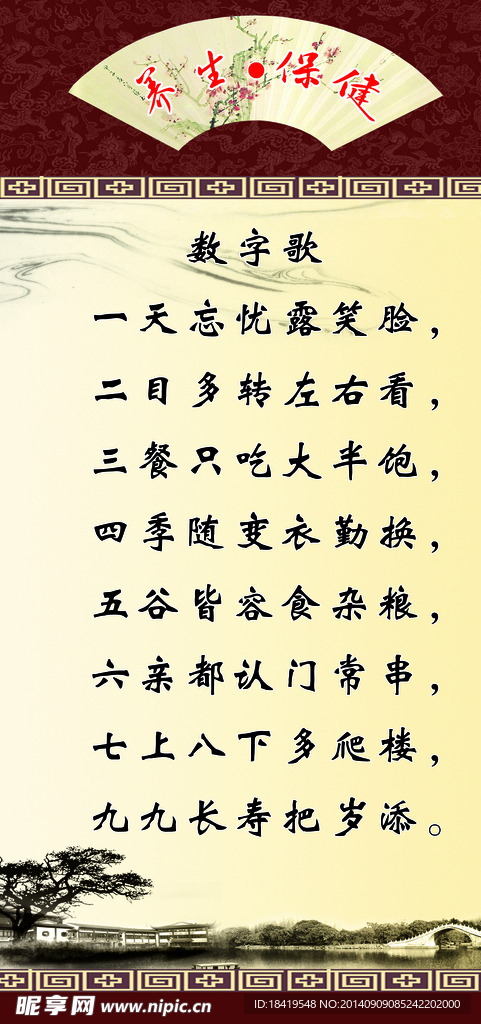 养生·保健
数字歌
一天忘忧露笑脸，
二目多转左右看，
三餐只吃大半饱，
四季随变衣勤换，
五谷皆容食杂粮，
六亲都认门常串，
七上八下多爬楼，
九九长寿把岁添。
昵享网 www.nipic.cn
ID:18419548 NO:20140909085242202000